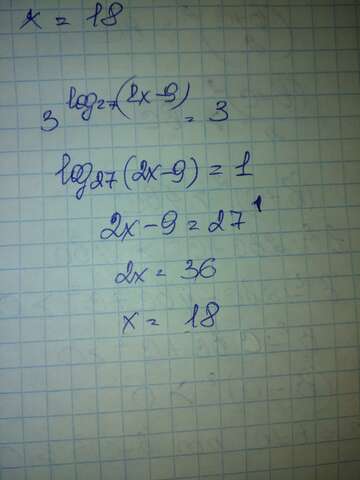 x = 18
3^log₂₇(2x-9) = 3
log₂₇(2x-9) = 1
2x-9 = 27¹
2x = 36
x = 18